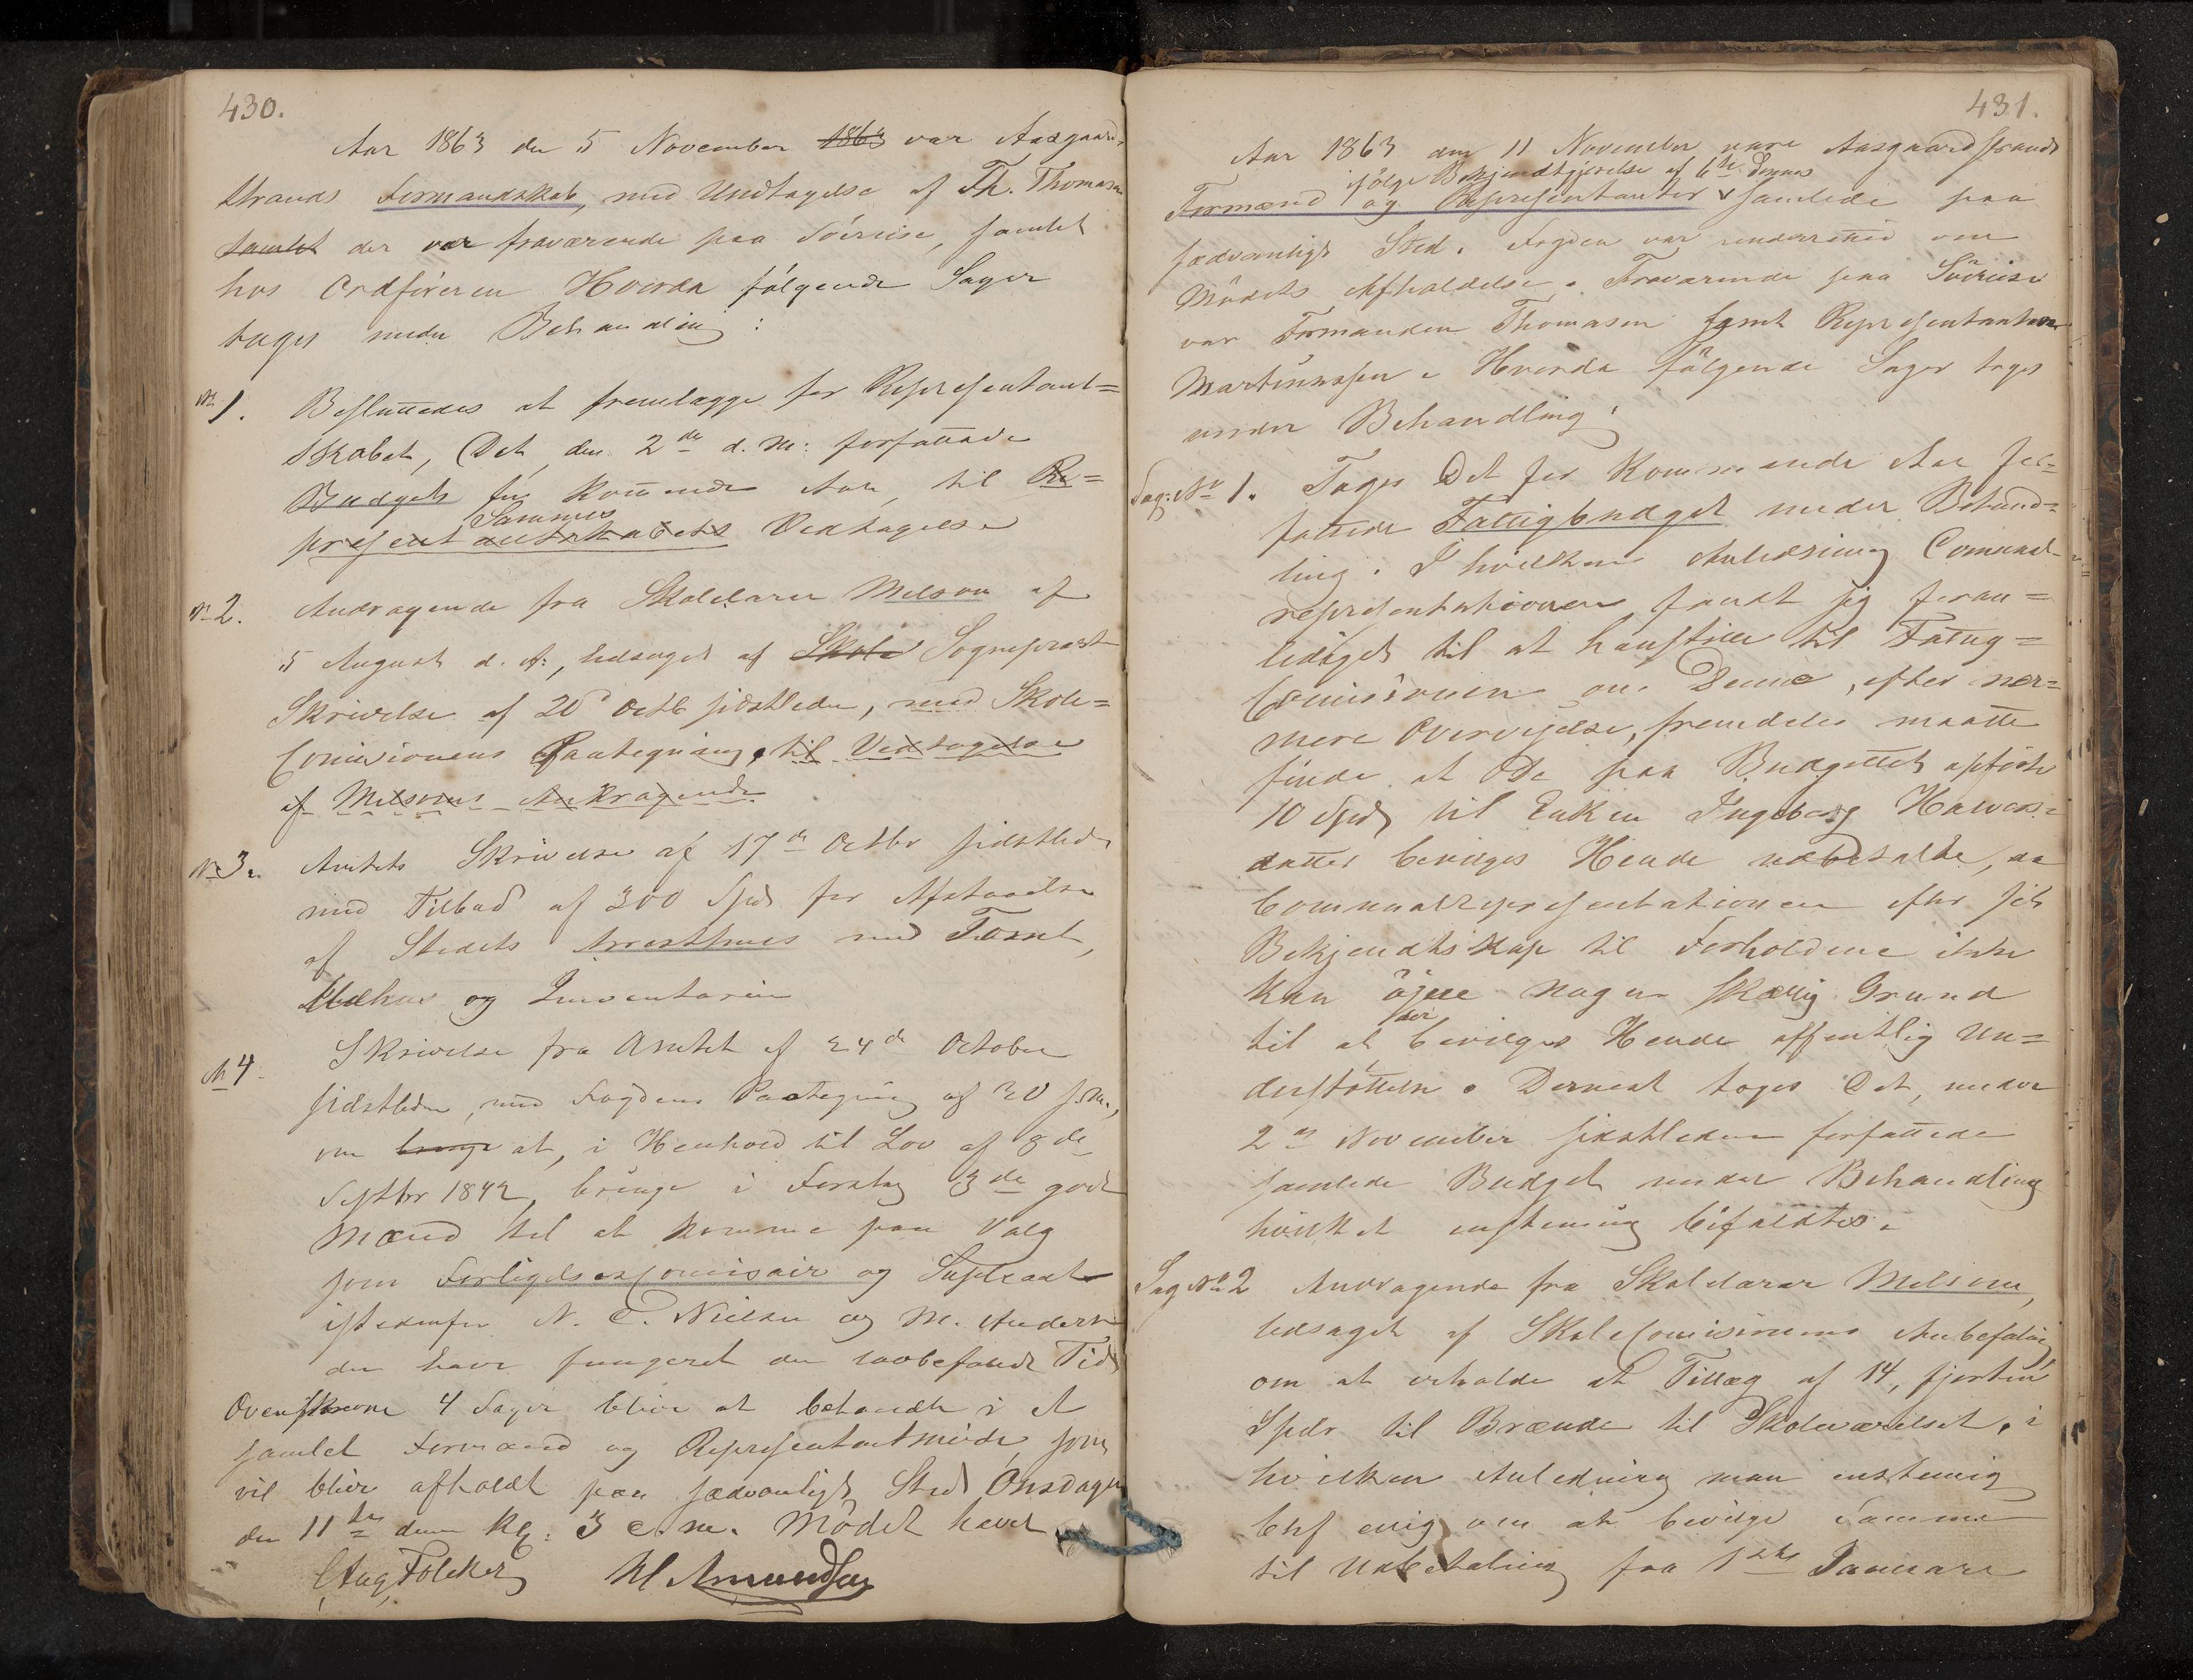 430.
Aar 1863 den 5 November 1863 var Aasgaard-
strands Formandskab, med Undtagelse af Th. Thomasen
samlet der var fraværende paa Söireise, samlet
hos Ordföreren Hvorda følgende Sager
toges under Behandling:
No 1. Besluttedes at fremlægge for Repræsentant=
skabet, Det den 2de d. M: forfattede
Budget for kommende Aar, til Re=
præsentantskabets Sammes Vedtagelse
No 2. Andragende fra Skolelærer Melsom af
5 August d. A:, ledsaget af Skole Sognepræst
Skrivelse af 20d Octb sidstleden, med Skole=
Comissionens Paategning, til Vedtagelse
af Melsoms Andragende
No 3. Amtets Skrivelse af 17de Octbr sidstleden
med Tilbud af 300 Spd for Afstaaelse
af Stedets Arresthuus med Tomt,
Udhus og Inventarium
No 4. Skrivelse fra Amtet af 24de October
sidstleden, med Fogdens Paategning af 30 s.M.,
om bringe at, i Henhold til Lov af 8de
Septbr 1842, bringe i Forslag 3de gode
Mænd til at komme paa Valg
som Forligelsescomisair og Supleant
istedenfor N. C. Nielsen og M. Andersen
der have fungeret den lovbefalede Tid
Ovenskrevne 4 Sager blive at behandle i et
samlet Formand og Repræsentantmöde, som
vil blive afholdt paa sædvanligt Sted Onsdagen
den 11te dens Kl: 3 e.m. Mödet hævet.
C Aug Fölcker H Amundsen
431.
Aar 1863 den 11 November vare Aasgaardstrands
ifölge Bekjendtgjörelse af 6te Dennes
Formænd og Repræsentanter samlede paa
sædvanligt Sted. Fogden var underrettet om
Mödets Afholdelse. Fraværende paa Söireise
var Formanden Thomasen samt Repræsentanten
Martinussen. Hvorda fölgende Sager toges
under Behandling:
Sag: No 1. Toges Det for kommende Aar for=
fattede Fattigbudget under Behand=
ling. I hvilken Anledning Comunal-
repræsentationen fandt sig foran=
lediget til at henstille til Fattig=
Comissionen om Denne, efter nær=
mere Overvejelse, fremdeles maatte
finde at De paa Budgettet opførte
10 Spd til Enken Ingeborg Halvors=
datter bevilges Hende udbetalte, da
Communalrepræsentationen efter sit
Bekjendtskap til Forholdene ikke
kan öjne nogen skjellig Grund
til at der bevilges Hende offentlig Un=
derstöttelse. Dernæst toges Det, under
2d November sidstleden forfattede
samlede Budget under Behandling
hvilket enstemig bifaldtes.
Sag No 2 Andragende fra Skolelærer Melsom,
ledsaget af Skolecomisionens Anbefaling
om at erholde et Tillæg af 14, fjorten
Spdr til Brænde til Skoleværelset, i
hvilken Anledning man enstemig
blef enig om at bevilge Samme
til Udbetaling fra 1ste Januar